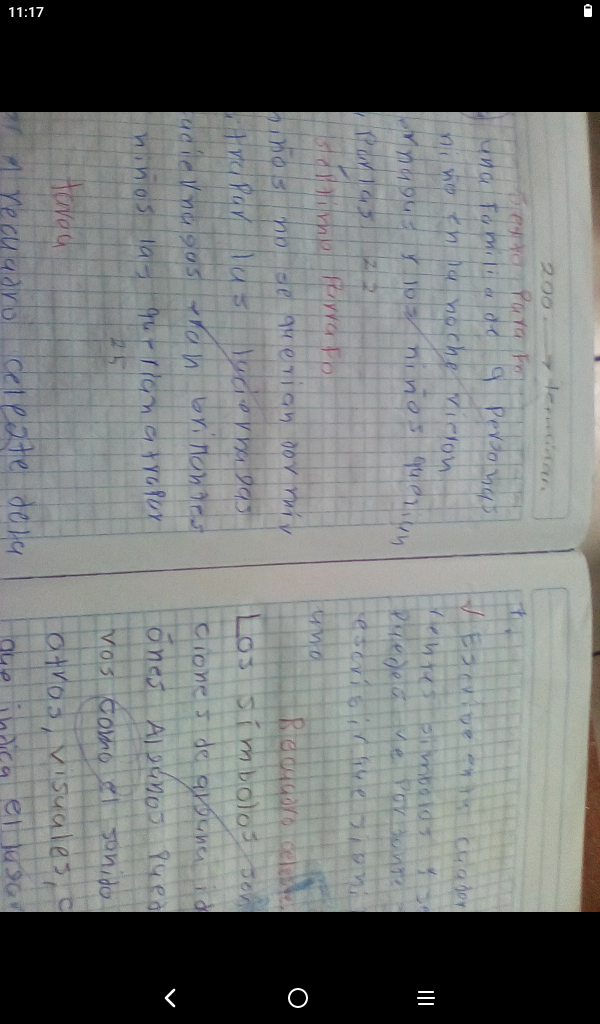 11:17
200 → terminar.
Sexto Parrafo
una familia de 9 personas
niño en la noche vieron
y los niños querian
22
septimo Parrafo
niños no se querian dormir
atrapar las luciernagas
luciernagas eran brillantes
niños las querian atrapar
25
tarea
recuadro celeste dela
1.
√ Escribe en tu cuader
rentes simbolos y se
Puedes
escribir que signi
uno
Recuadro celeste.
Los símbolos son
ciones de alguna id
ónes Algunos Pued
vos como el sonido
otros, visuales, c
que indica el lugar